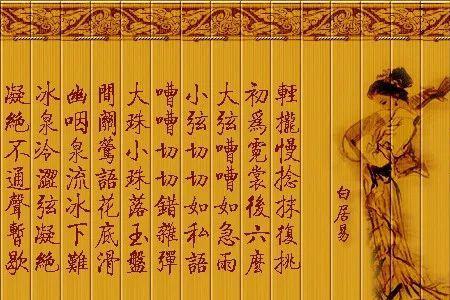 白居易
輕攏慢捻抹復挑
初爲霓裳後六麼
大弦嘈嘈如急雨
小弦切切如私語
嘈嘈切切錯雜彈
大珠小珠落玉盤
間關鶯語花底滑
幽咽泉流冰下難
冰泉冷澀弦凝絕
凝絕不通聲暫歇